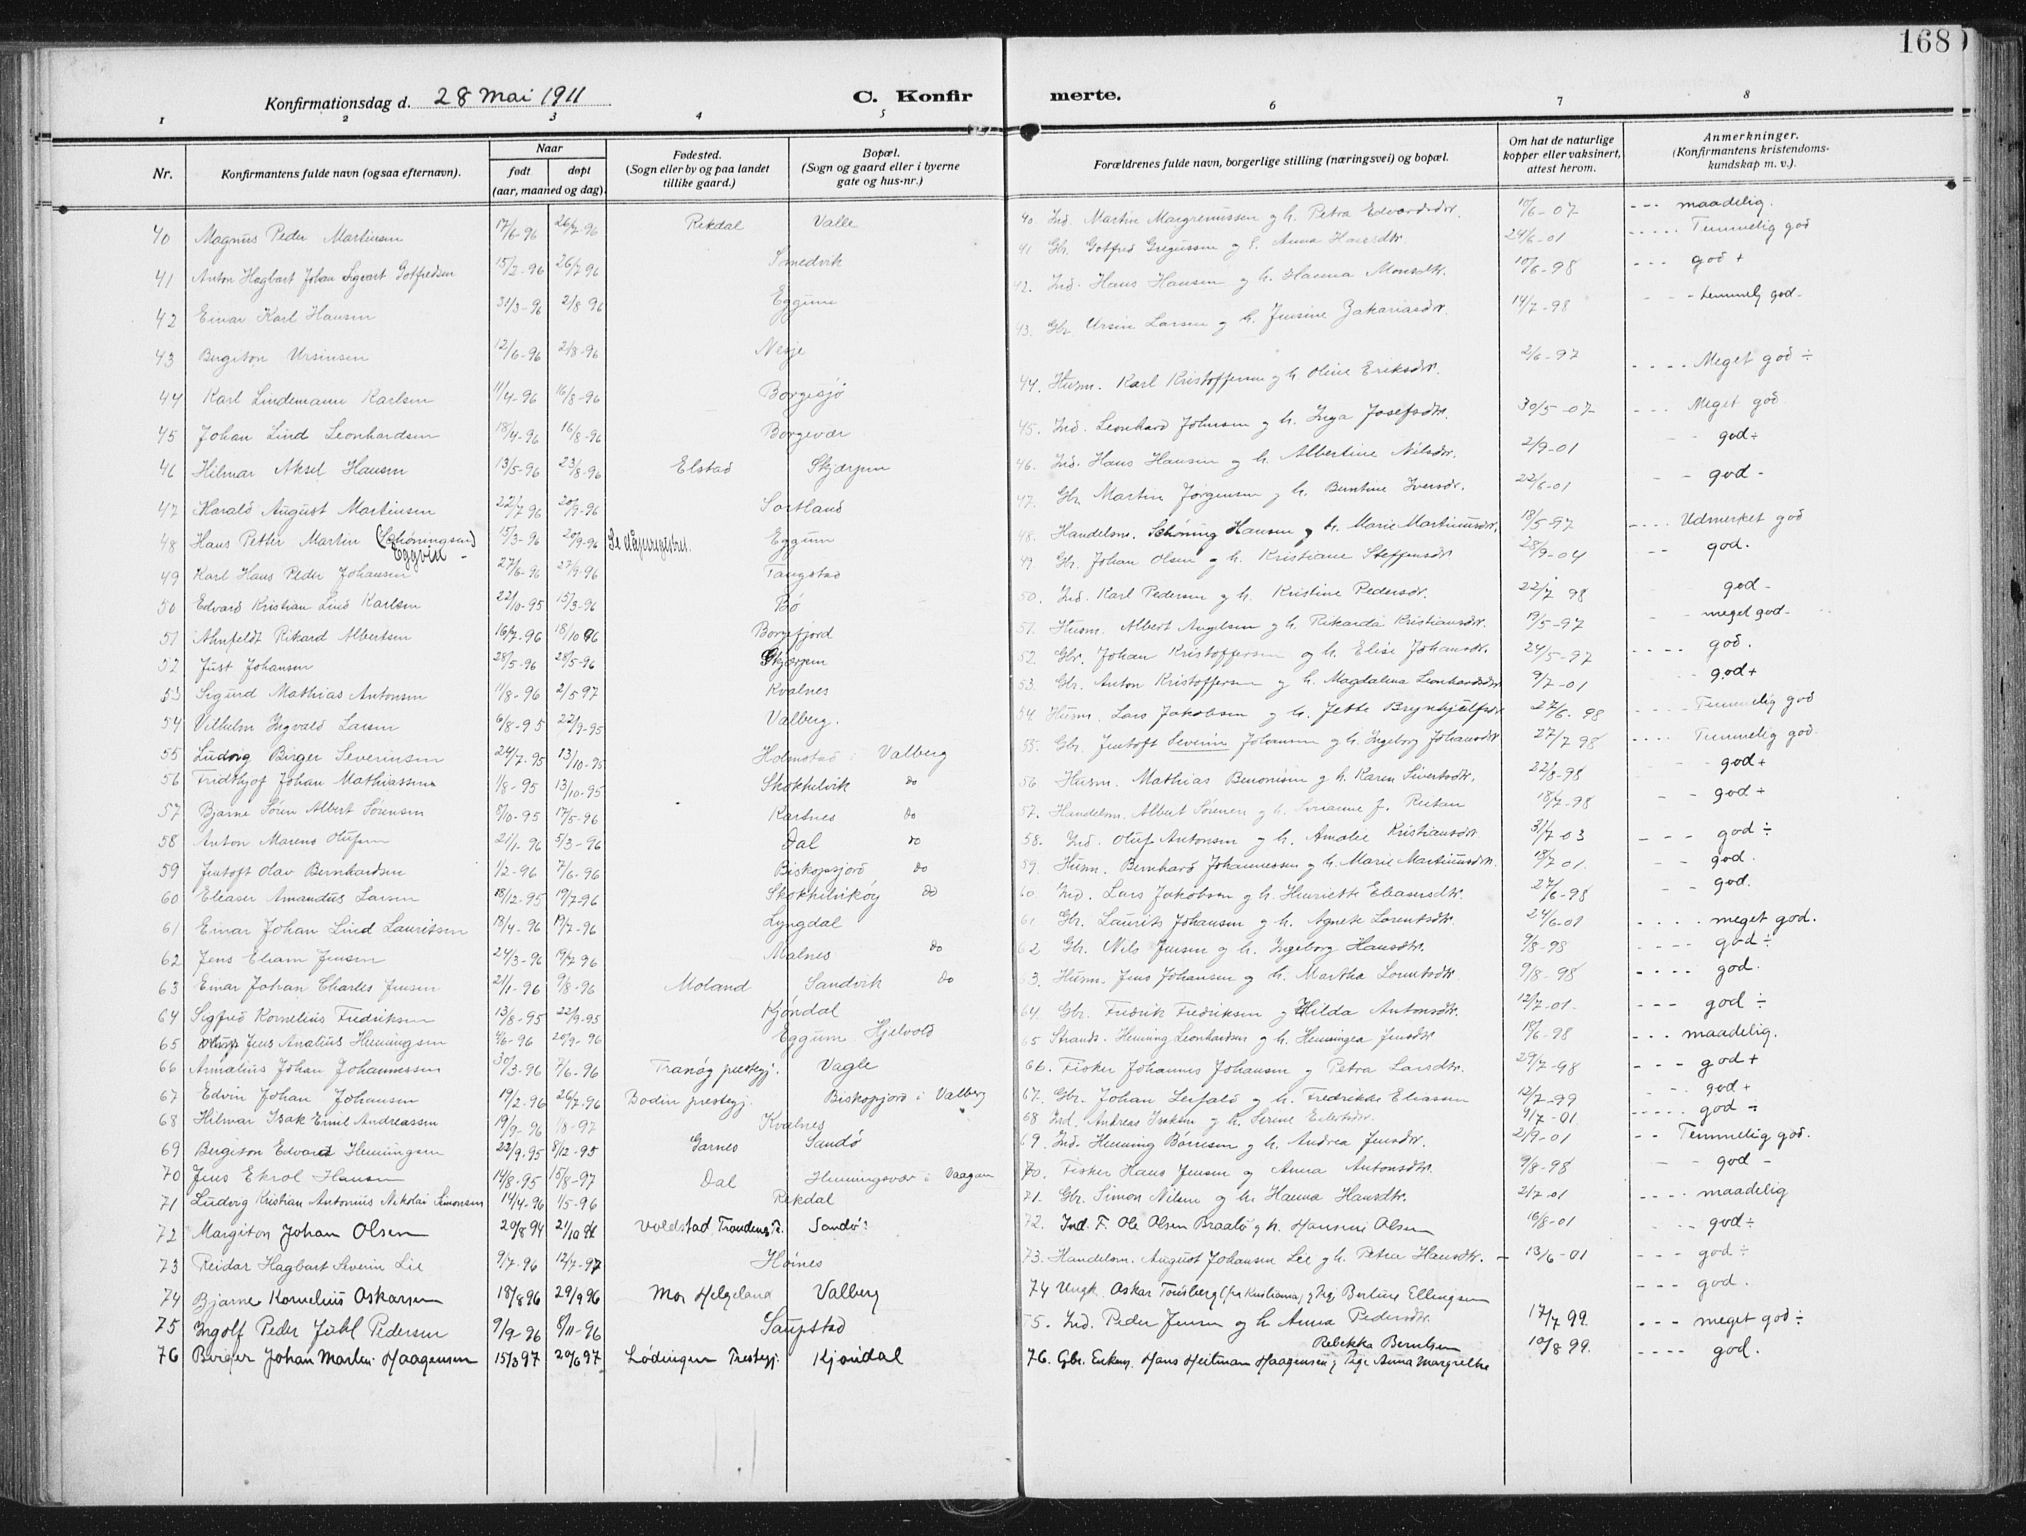 168
Konfirmationsdag d. 28 Mai 1911 C. Konfirmerte.
1 2 3 4 5 6 7 8
Nr. Konfirmantens fulde navn (ogsaa efternavn). Naar født døpt (aar, maaned og dag). Fødested. (Sogn eller by og paa landet tillike gaard.) Bopæl. (Sogn og gaard eller i byerne gate og hus-nr.) Forældrenes fulde navn, borgerlige stilling (næringsvei) og bopæl. Om hat de naturlige kopper eller vaksinert, attest herom. Anmerkninger. (Konfirmantens kristendoms-kundskap m. v.).
40 Magnus Peder Martinsen 17/6-96 26/7-96 Rekdal Valle 40. Ind. Martin Margrenussen og h. Petra Edvardsdtr. 10/6-07 --- maadelig.
41 Anton Hagbart Johan Sigvart Gotfredsen 15/2-96 26/7 96 Smedvik 41 Gbr. Gotfred Gregussen og h. Anna Hansdtr. 24/6-01 ----- Temmelig god
42 Einar Karl Hansen 31/3-96 2/8 96 Eggum 42. Ind. Hans Hansen og h. Hanna Monsdtr. 10/6-98 --- god +
43 Bergiton Ursinsen 12/6-96 2/8-96 Nesje 43. Gbr. Ursin Larsen og h. Jensine Zakariasdtr. 14/7-98 - - temmelig god -
44 Karl Lindemann Karlsen 11/4-96 16/8-96 Borgesjø 44. Husm. Karl Kristoffersen og h. Oline Eriksdtr. 2/6-97 ---- Meget god ÷
45 Johan Lind Leonhardsen 18/4-96 16/8-96 Borgevær 45. Ind. Leonhard Johnsen og h. Inga Josefsdtr. 30/5-07 --- Meget god
46 Hilmar Aksel Hansen 13/5-96 23/8-96 Elstad Skjærpen 46. Ind. Hans Hansen og h. Albertine Nilsdtr. 2/9-01 - - god ÷
47 Harald August Martinsen 22/7 96 20/9-96 Sortland 47. Gbr. Martin Jørgensen og h. Berntine Iversdtr. 22/6-01 - - god -
48 Hans Petter Martin (Schøningsen) Eggvin - 15/3-96 20/9-96 Se dåpsregistret. Eggum 48. Handelsm. Schøning Hansen og h. Marie Martinusdtr. 18/5-97 ---- Udmerket god
49 Karl Hans Peder Johansen 27/6-96 27/9-96 Tangstad 49. Gbr. Johan Olsen og h. Kristiane Steffensdtr. 28/9-04 -- god.
50 Edvard Kristian Lind Karlsen 22/10-95 15/3-96 Bø 50. Ind. Karl Pedersen og h. Kristine Pedersdtr. 22/7 98 god -
51 Ahnfeldt Rikard Albertsen 16/7-96 18/10 96 Borgefjord 51. Husm. Albert Angelsen og h. Rikarda Kristiansdtr. 19/5-97 - meget god -
52 Just Johansen 28/5-96 28/5-96 Skjærpen 52. Gbr. Johan Kristoffersen og h. Elise Johansdtr. 24/5-97 ---- god.
53 Sigurd Mathias Antonsen 11/8-96 2/5 97 Kvalnes 53. Gbr. Anton Kristoffersen og h. Magdalena Leonhardsdtr 9/7-01 -- god +
54 Vilhelm Ingvald Larsen 6/8-95 22/9-95 Valberg. 54 Husm. Lars Jakobsen og h. Jette Brynhjulfsdtr 27/6-98 ---- Temmelig god
55 Ludvig Birger Severinsen 24/7-95 13/10-95 Holmstad i Valberg 55. Gbr. Jentoft Severin Johansen og h. Ingeborg Johansdtr 27/7 98 ---- Temmelig god.
56 Fridthjof Johan Mathiassen 1/8-95 13/10-95 Skokkelvik do 56 Husm. Mathias Benonisen og h. Karen Sivertsdtr. 22/8-98 - god +
57 Bjarne Søren Albert Sørensen 8/10-95 17/5-96 Kartnes do 57. Handelsm. Albert Sørensen og h. Sorianne J. Reitan 18/7-98 - - god +
58 Anton Marens Olufsen 21/1-96 5/3-96 Dal do 58. Ind. Oluf Antonsen og h. Amalie Kristiansdtr. 31/7 03 --- god ÷
59 Jentoft Olav Bernhardsen 1/2-96 7/6-96 Biskopsjord do 59. Husm. Bernhard Johannessen og h. Marie Martinusdtr. 18/7 01. - - god.
60 Eleaser Amandus Larsen 18/12-95 19/7-96 Skokkelvikøy do 60. Ind. Lars Jakobsen og h. Henriette Eleasersdtr. 27/6-98 - - god.
61 Einar Johan Lind Lauritsen 18/4-96 19/7-96 Lyngdal 61 Gbr. Laurits Johansen og h. Agnete Lorentsdtr. 24/6-01 ---- meget god.
62 Jens Eliam Jensen 24/3-96 19/7 96 Malnes do 62 Gbr. Nils Jensen og h. Ingeborg Hansdtr. 9/8-98 ---- god ÷
63 Einar Johan Charles Jensen 21/1-96 9/8-96 Moland Sandvik do 63. Husm. Jens Johansen og h. Martha Lorentsdtr. 9/8-98 ---- god.
64 Sigfred Kornelius Fredriksen 13/8-95 22/9-95 Kjøndal 64. Gbr. Fredrik Fredriksen og Hilda Antonsdtr. 12/7-01. --- god ÷
65 Oluf Jens Anatius Henningsen 4/6-96 20/9-96 Eggum Hjelvold 65 Strands. Henning Leonhardsen og h. Henningea Jensdtr. 18/6-98 --- maadelig.
66 Annatius Johan Johannessen 30/3-96 7/6-96 Tranøy prestegj. Vagle 66. Fisker Johannes Johansen og Petra Larsdtr. 29/7-98 --- god +
67 Edvin Johan Johansen 19/2-96 26/7-96 Bodin prestegj. Biskopjord i Valberg 67. Gbr. Johan Leifald og h. Fredrikke Eliassen 12/7-99 - god +
68 Hilmar Isak Emil Andreassen 19/9-96 1/8-97 Kvalnes 68 Ind. Andreas Isaksen og h. Serine Eilertsdtr. 9/7-01 ----- god ÷
69 Bergiton Edvard Henningsen 22/9-95 8/12-95 Garnes Sandø 69. Ind. Henning Børresen og h. Andrea Jensdtr. 2/9-01 -- Temmelig god.
70 Jens Ekrol Hansen 14/8-95 15/8-97 Dal Henningsvær i Vaagan 70. Fisker Hans Jensen og Anna Antonsdtr. 9/8-98 - - god -
71 Ludvig Kristian Antonius Nikolai Simonsen 14/4-96 1/5-96 Rekdal 71. Gbr. Simon Nilsen og h. Hanna Hansdtr. 2/7-01 ---- maadelig
72 Margiton Johan Olsen 29/8 94 21/10 94 Voldstad Trondenes P. Sandø 72. Ind. F. Ole Olsen Braatø og h. Hansine Olsen 16/8-01 --- god ÷
73 Reidar Hagbart Severin Lie 9/7-96 12/7-97 Høines 73. Handelsm. August Johansen Lie og h. Petra Hansdtr. - 13/6-01 --- god ÷
74 Bjarne Kornelius Oskarsen 18/8 96 29/9 96 Mo, Helgeland Valberg 74 Ungk. Oskar Tønsberg (fra Kristiania) og pige Berline Ellingsen --- god.
75 Ingolf Peder Juhl Pedersen 9/9-96 8/11-96 Saupstad 75. Ind. Peder Jensen og h. Anna Pedersdtr. 17/7 99. --- meget god ÷
76 Birger Johan Martin Haagensen 15/3 97 20/6 97 Lødingen Prestegj. Kjøndal 76. Gbr. Enkem. Hans Heitman Haagensen og Pige Anna Margrethe Rebekka Berntsen 10/8 99. ---- god.